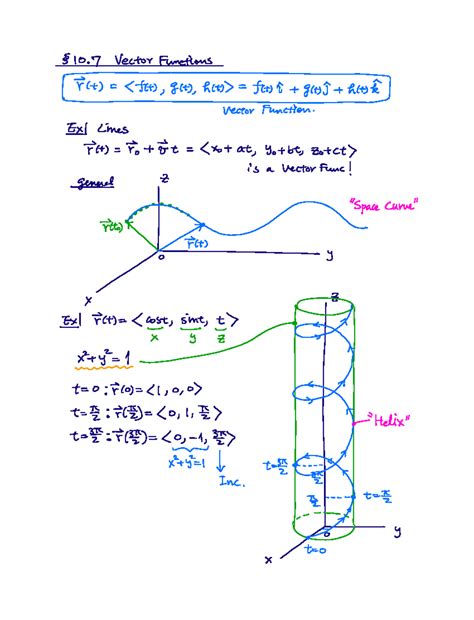 §10.7 Vector Functions
r⃗(t) = <f(t), g(t), h(t)> = f(t)î + g(t)ĵ + h(t)k̂
Vector Function.
Ex| Lines
r⃗(t) = r⃗₀ + v⃗t = <x₀+at, y₀+bt, z₀+ct>
is a Vector Func!
general
z
"Space Curve"
r⃗(t₀)
r⃗(t)
0
y
x
Ex| r⃗(t) = <cost, sint, t>
x y z
z
x²+y²=1
t=0 : r⃗(0) = <1, 0, 0>
t=π/2 : r⃗(π/2) = <0, 1, π/2>
"Helix"
t=3π/2 : r⃗(3π/2) = <0, -1, 3π/2>
x²+y²=1
Inc.
t=3π/2
3π/2
π/2
t=π/2
0
y
x
t=0